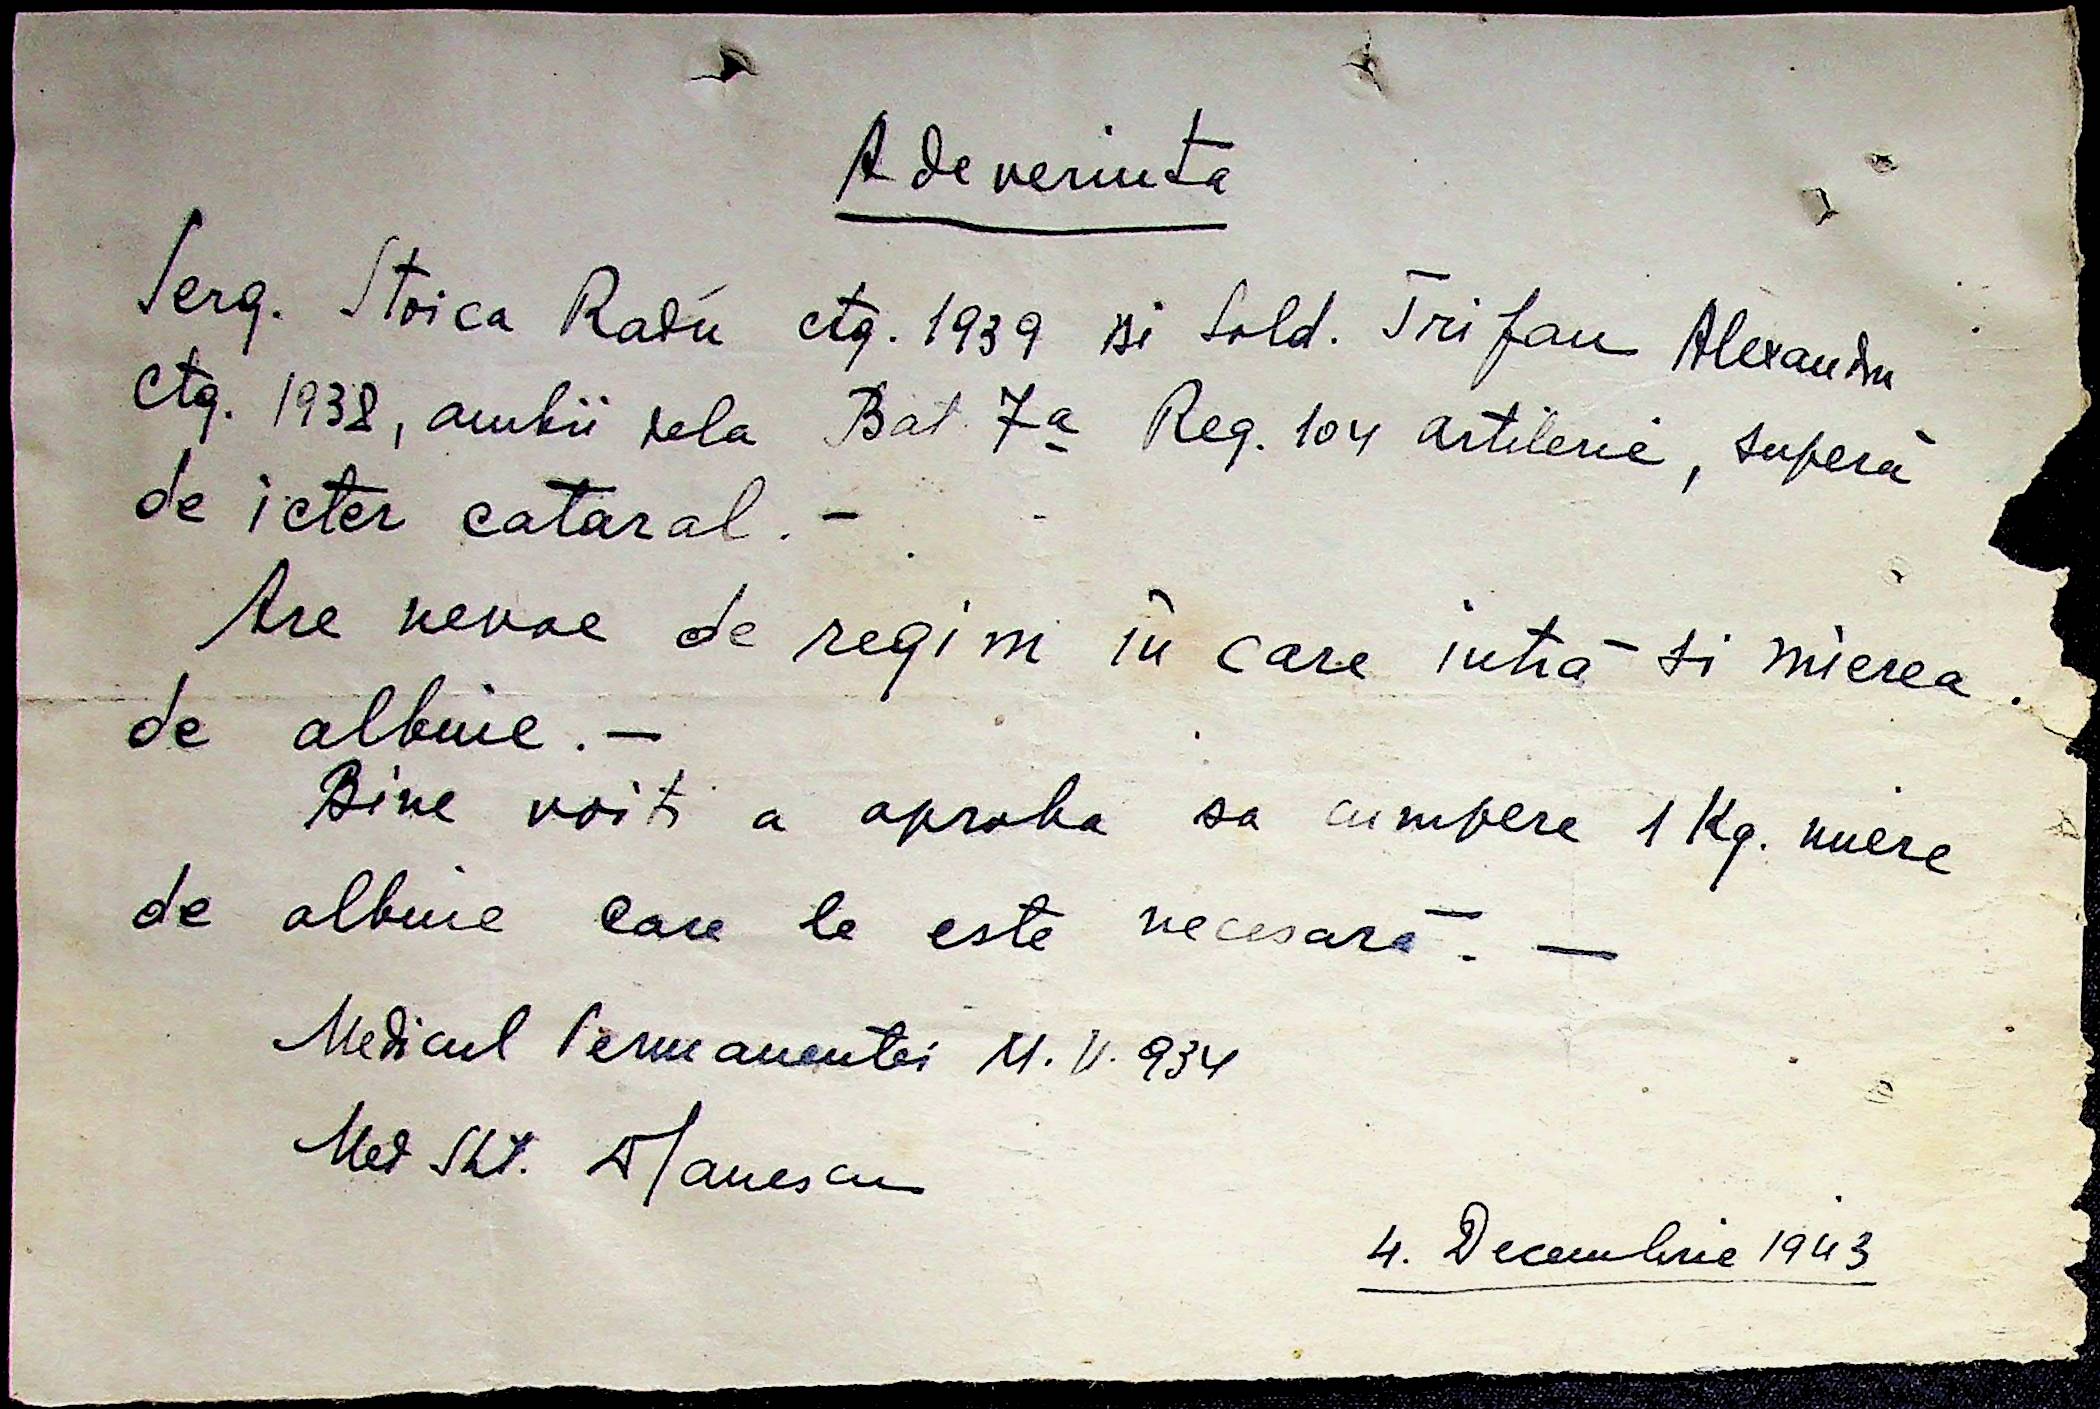 Adeverinta
Serg. Stoica Radu ctg. 1939 si Sold. Trifan Alexandru
ctg. 1938, ambii dela Bat. 7a Reg. 104 artilerie, suferă
de icter cataral. -
Are nevoe de regim în care intră si mierea
de albine. -
Bine voiti a aproba sa cumpere 1 Kg. miere
de albine care le este necesară. -
Medicul Permanentei M.V. 934
Med Slt.
4. Decembrie 1943